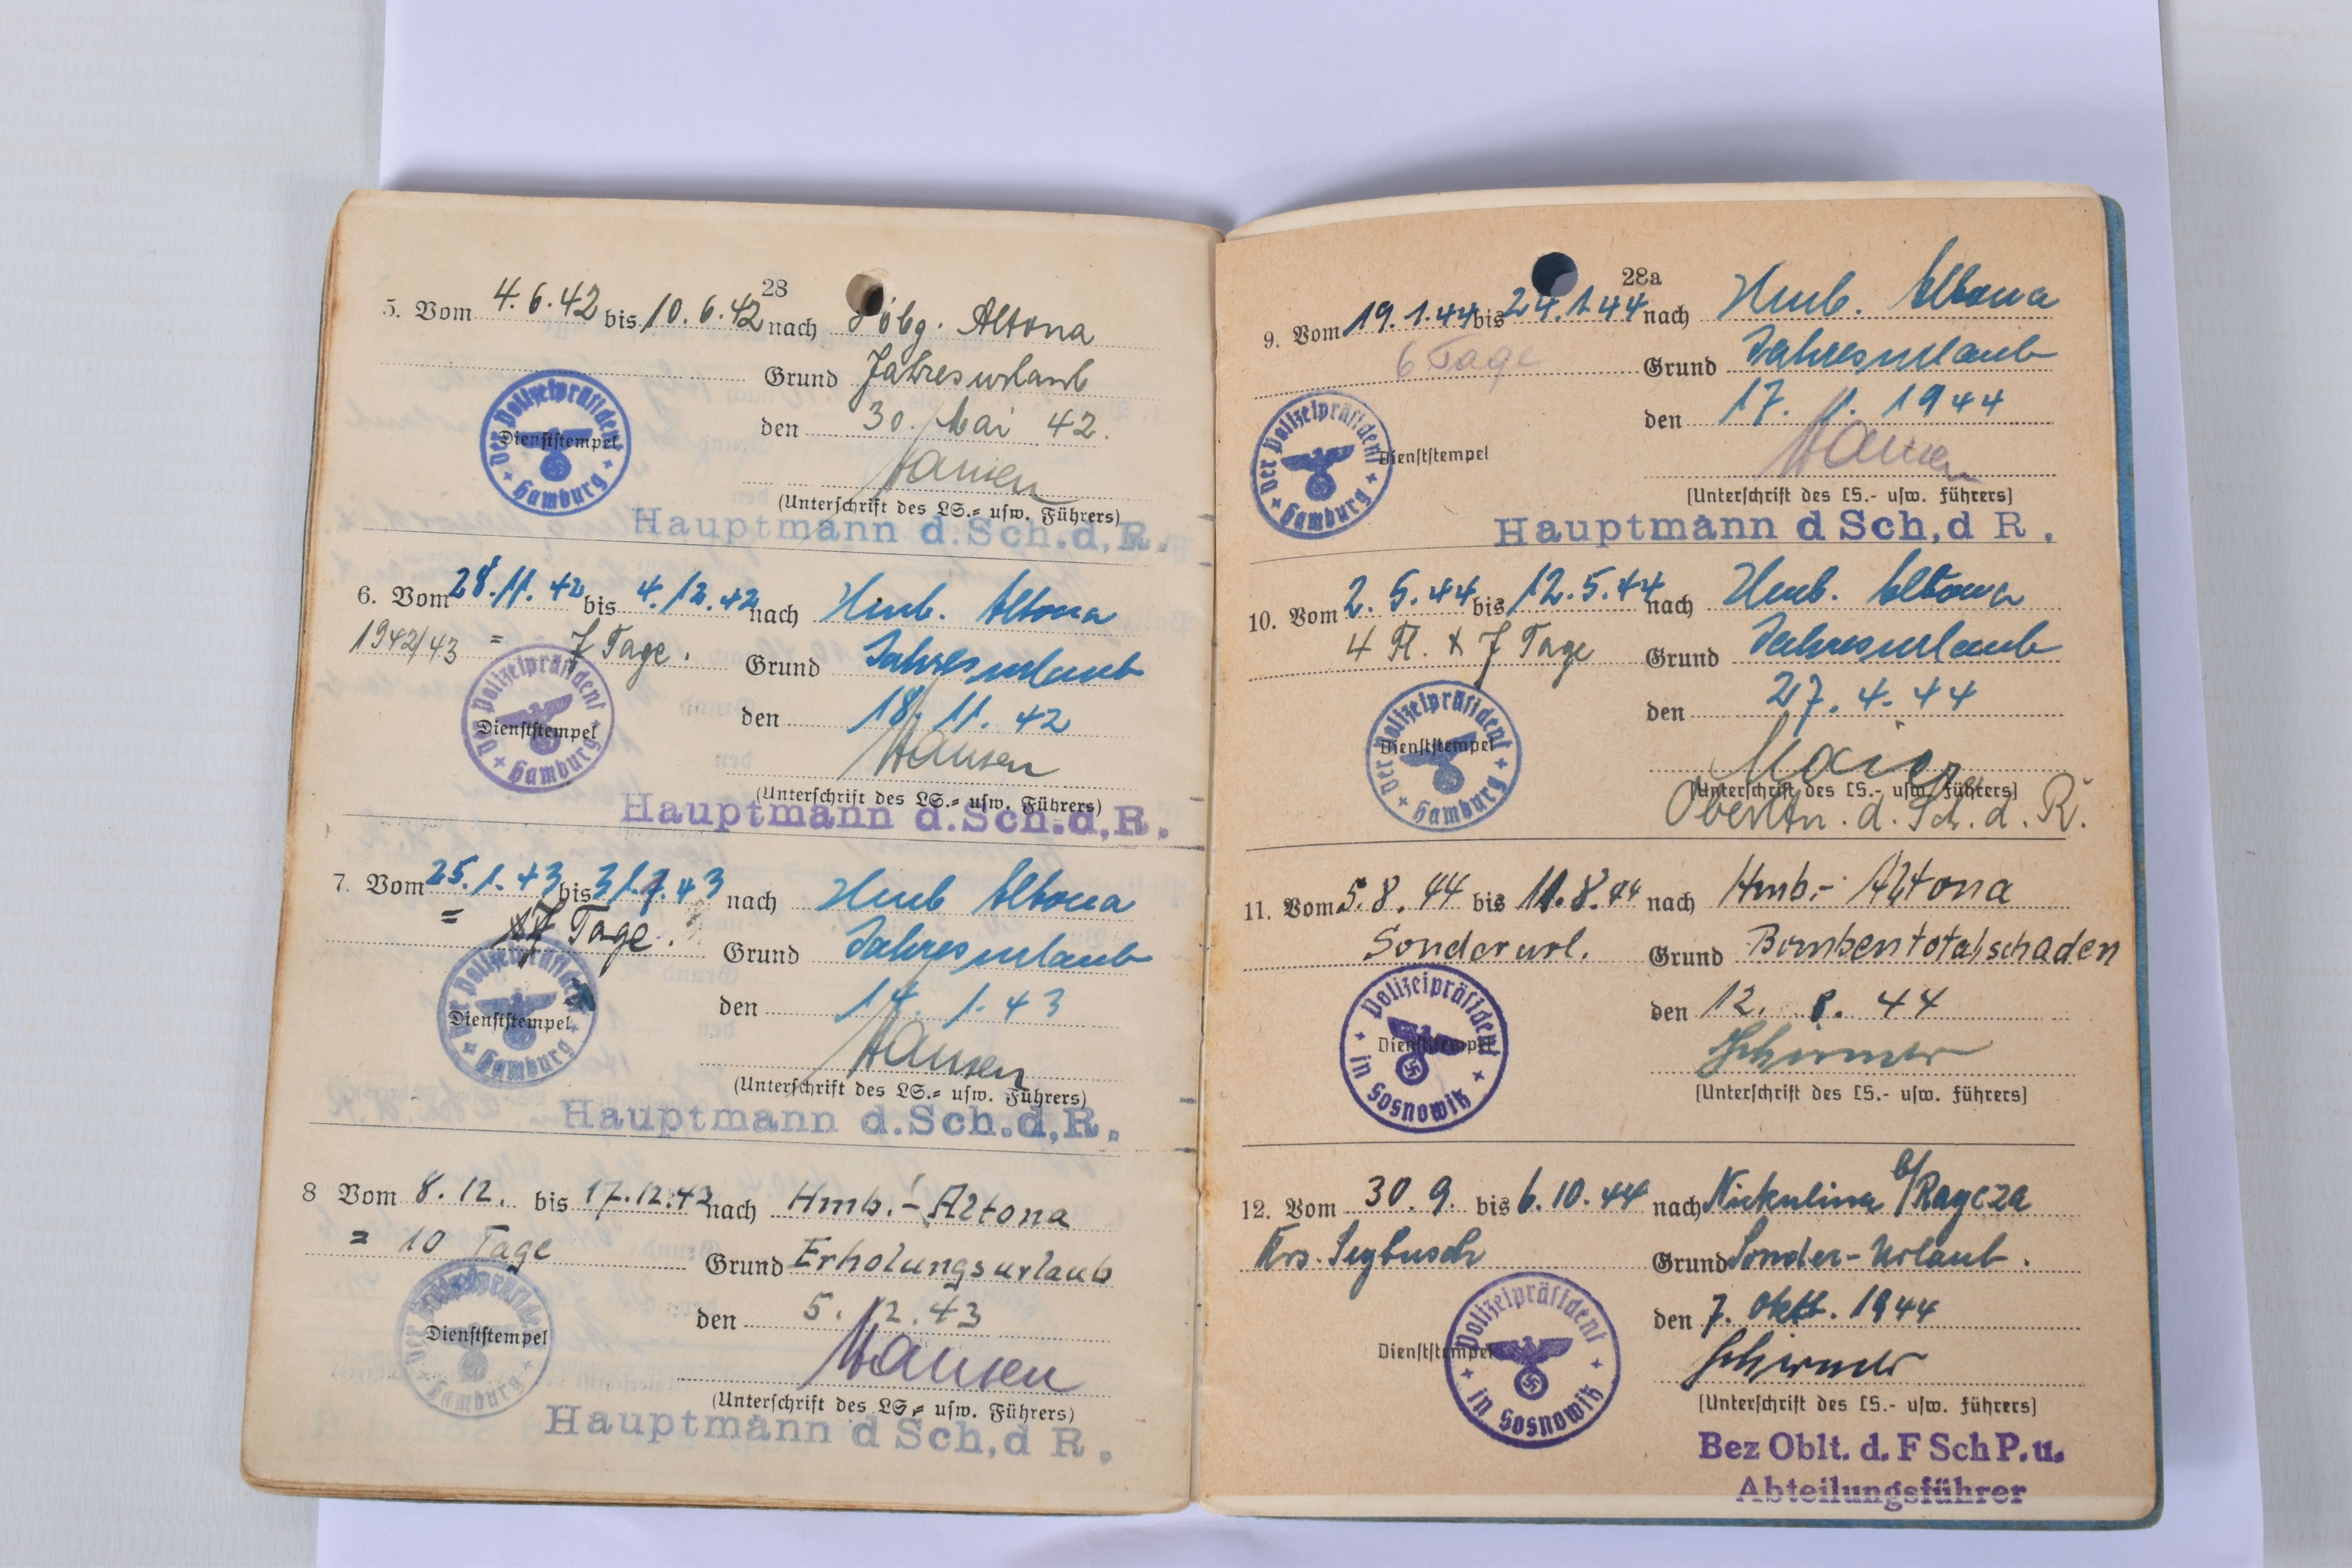 28
5. Vom 4.6.42 bis 10.6.42 nach Hbg. Altona
Grund Jahresurlaub
den 30. Mai 42.
Der Polizeipräsident
Dienststempel
Hamburg
Hansen
(Unterschrift des LS.- usw. Führers)
Hauptmann d.Sch.d,R.
6. Vom 28.11.42 bis 4.12.42 nach Hmb. Altona
1942/43 = 7 Tage. Grund Jahresurlaub
den 18.11.42
Der Polizeipräsident
Dienststempel
Hamburg
Hansen
(Unterschrift des LS.- usw. Führers)
Hauptmann d.Sch.d,R.
7. Vom 25.1.43 bis 31.1.43 nach Hmb Altona
= 7 Tage. Grund Jahresurlaub
den 14.1.43
Der Polizeipräsident
Dienststempel
Hamburg
Hansen
(Unterschrift des LS.- usw. Führers)
Hauptmann d.Sch.d,R.
8 Vom 8.12. bis 17.12.43 nach Hmb.- Altona
= 10 Tage Grund Erholungsurlaub
den 5.12.43
Der Polizeipräsident
Dienststempel
Hamburg
Hansen
(Unterschrift des LS.- usw. Führers)
Hauptmann d Sch,d R.
28a
9. Vom 19.1.44 bis 24.1.44 nach Hmb. Altona
6 Tage Grund Jahresurlaub
den 17.1.1944
Der Polizeipräsident
Dienststempel
Hamburg
Hansen
(Unterschrift des LS.- usw. Führers)
Hauptmann d Sch,d R.
10. Vom 2.5.44 bis 12.5.44 nach Hmb. Altona
4 Fl. + 7 Tage Grund Jahresurlaub
den 27.4.44
Der Polizeipräsident
Dienststempel
Hamburg
(Unterschrift des LS.- usw. Führers)
Oberltn. d. Sch. d. R.
11. Vom 5.8.44 bis 11.8.44 nach Hmb.- Altona
Sonderurl. Grund Bombentotalschaden
den 12. 8. 44
Polizeipräsident
Dienststempel
in Sosnowitz
Schirmer
(Unterschrift des LS.- usw. Führers)
12. Vom 30.9. bis 6.10.44 nach Nickulina b/Raycza
Krs. Seybusch Grund Sonder-Urlaub.
den 7. Okt. 1944
Polizeipräsident
Dienststempel
in Sosnowitz
Schirmer
(Unterschrift des LS.- usw. Führers)
Bez Oblt. d. F Sch P. u.
Abteilungsführer